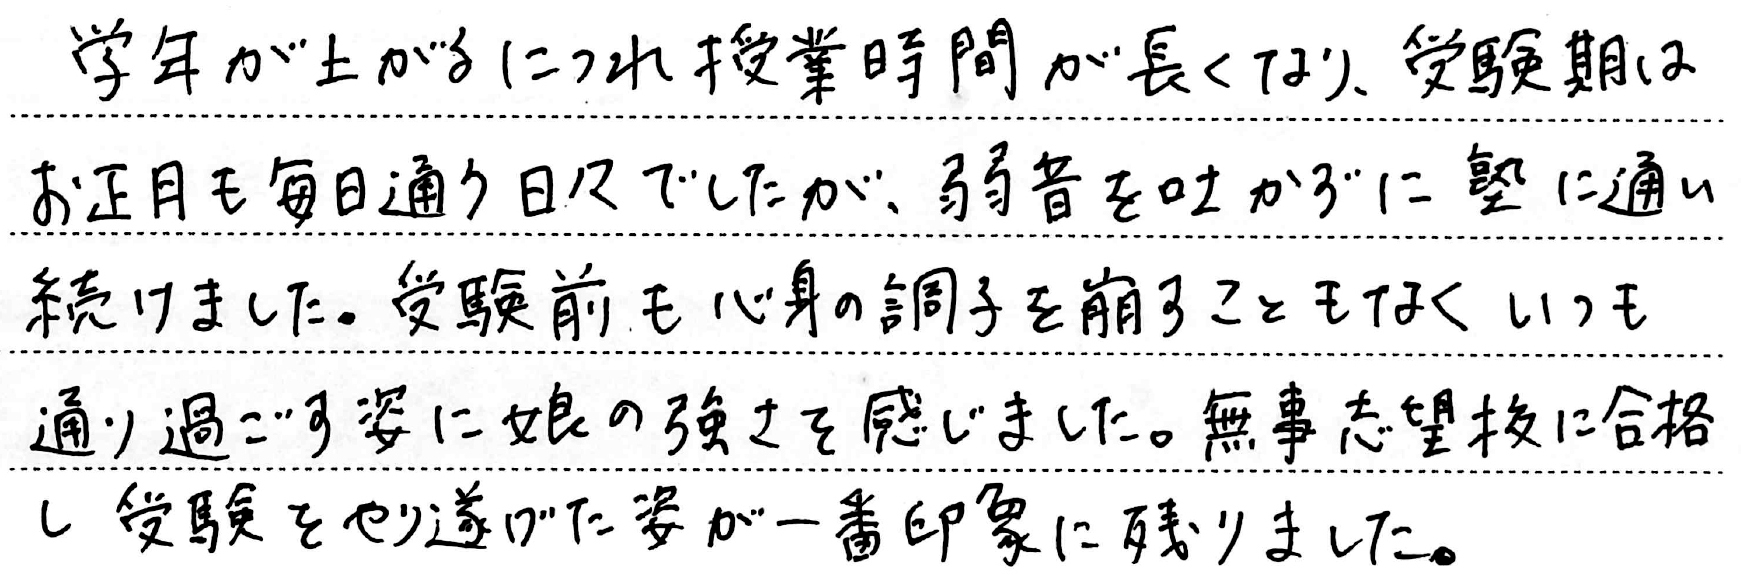 学年が上がるにつれ授業時間が長くなり、受験期は
お正月も毎日通う日々でしたが、弱音を吐かずに塾に通い
続けました。受験前も心身の調子を崩すこともなくいつも
通り過ごす姿に娘の強さを感じました。無事志望校に合格
し受験をやり遂げた姿が一番印象に残りました。